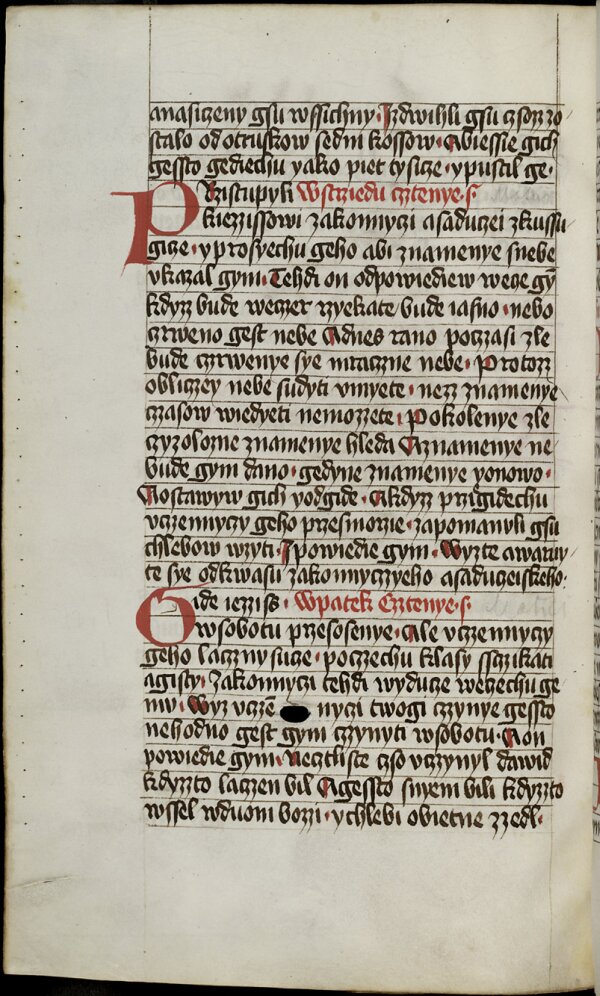 anasiczeny gsu wssichny · Izdwihli gsu czsozz zo
stalo od otruskow sedm kossow · Abiessie gich
gessto gediechu yako piet tysicze · ypustil ge ·
PRzistupyli Wstrziedu cztenye · s ·
kiezzissowi zakonnyczi asaduczei zkussu
gicze · yprosyechu geho abi znamenye snebe
vkazal gym · Tehdi on odpowiediew wece gȳ
kdyzz bude weczer rzyekate bude iasno · nebo
czrweno gest nebe Adnes rano poczasi zle
bude czrwenye sye mraczne nebe · Protozz
obliczey nebe sudyti vmyete · nezz znamenye
czasow wiedyeti nemozzete · Pokolenye zle
czyzolozne znamenye hleda Aznamenye ne
bude gym dano · gedyne znamenye yonowo ·
Aostawyw gich yodgide · Akdyzz przigidechu
vczennyczy geho przesmorzie · zapomanyli gsu
chlebow wzyti · Ipowiedie gym · Wyzte awaruy
te sye odkwasu zakonnyczyeho asaduczeiskeho ·
Gide iezziss · Wpatek Cztenye · s ·
wsobotu przesosenye · Ale vczennyczy
geho laczny sucze · poczechu klasy sszczikati
agisty · Zakonnyczi tehdi wyducze wecechu ge
mu · Wyz vczē nyczi twogi czzynye gessto
nehodno gest gym czynyti wsobotu · Aon
powiedie gym · Necztliste czso vczynyl dawid
kdyzzto laczen bil Agessto snyem bili kdyzzto
wssel wduom bozzi · ychlebi obietne zzedl ·